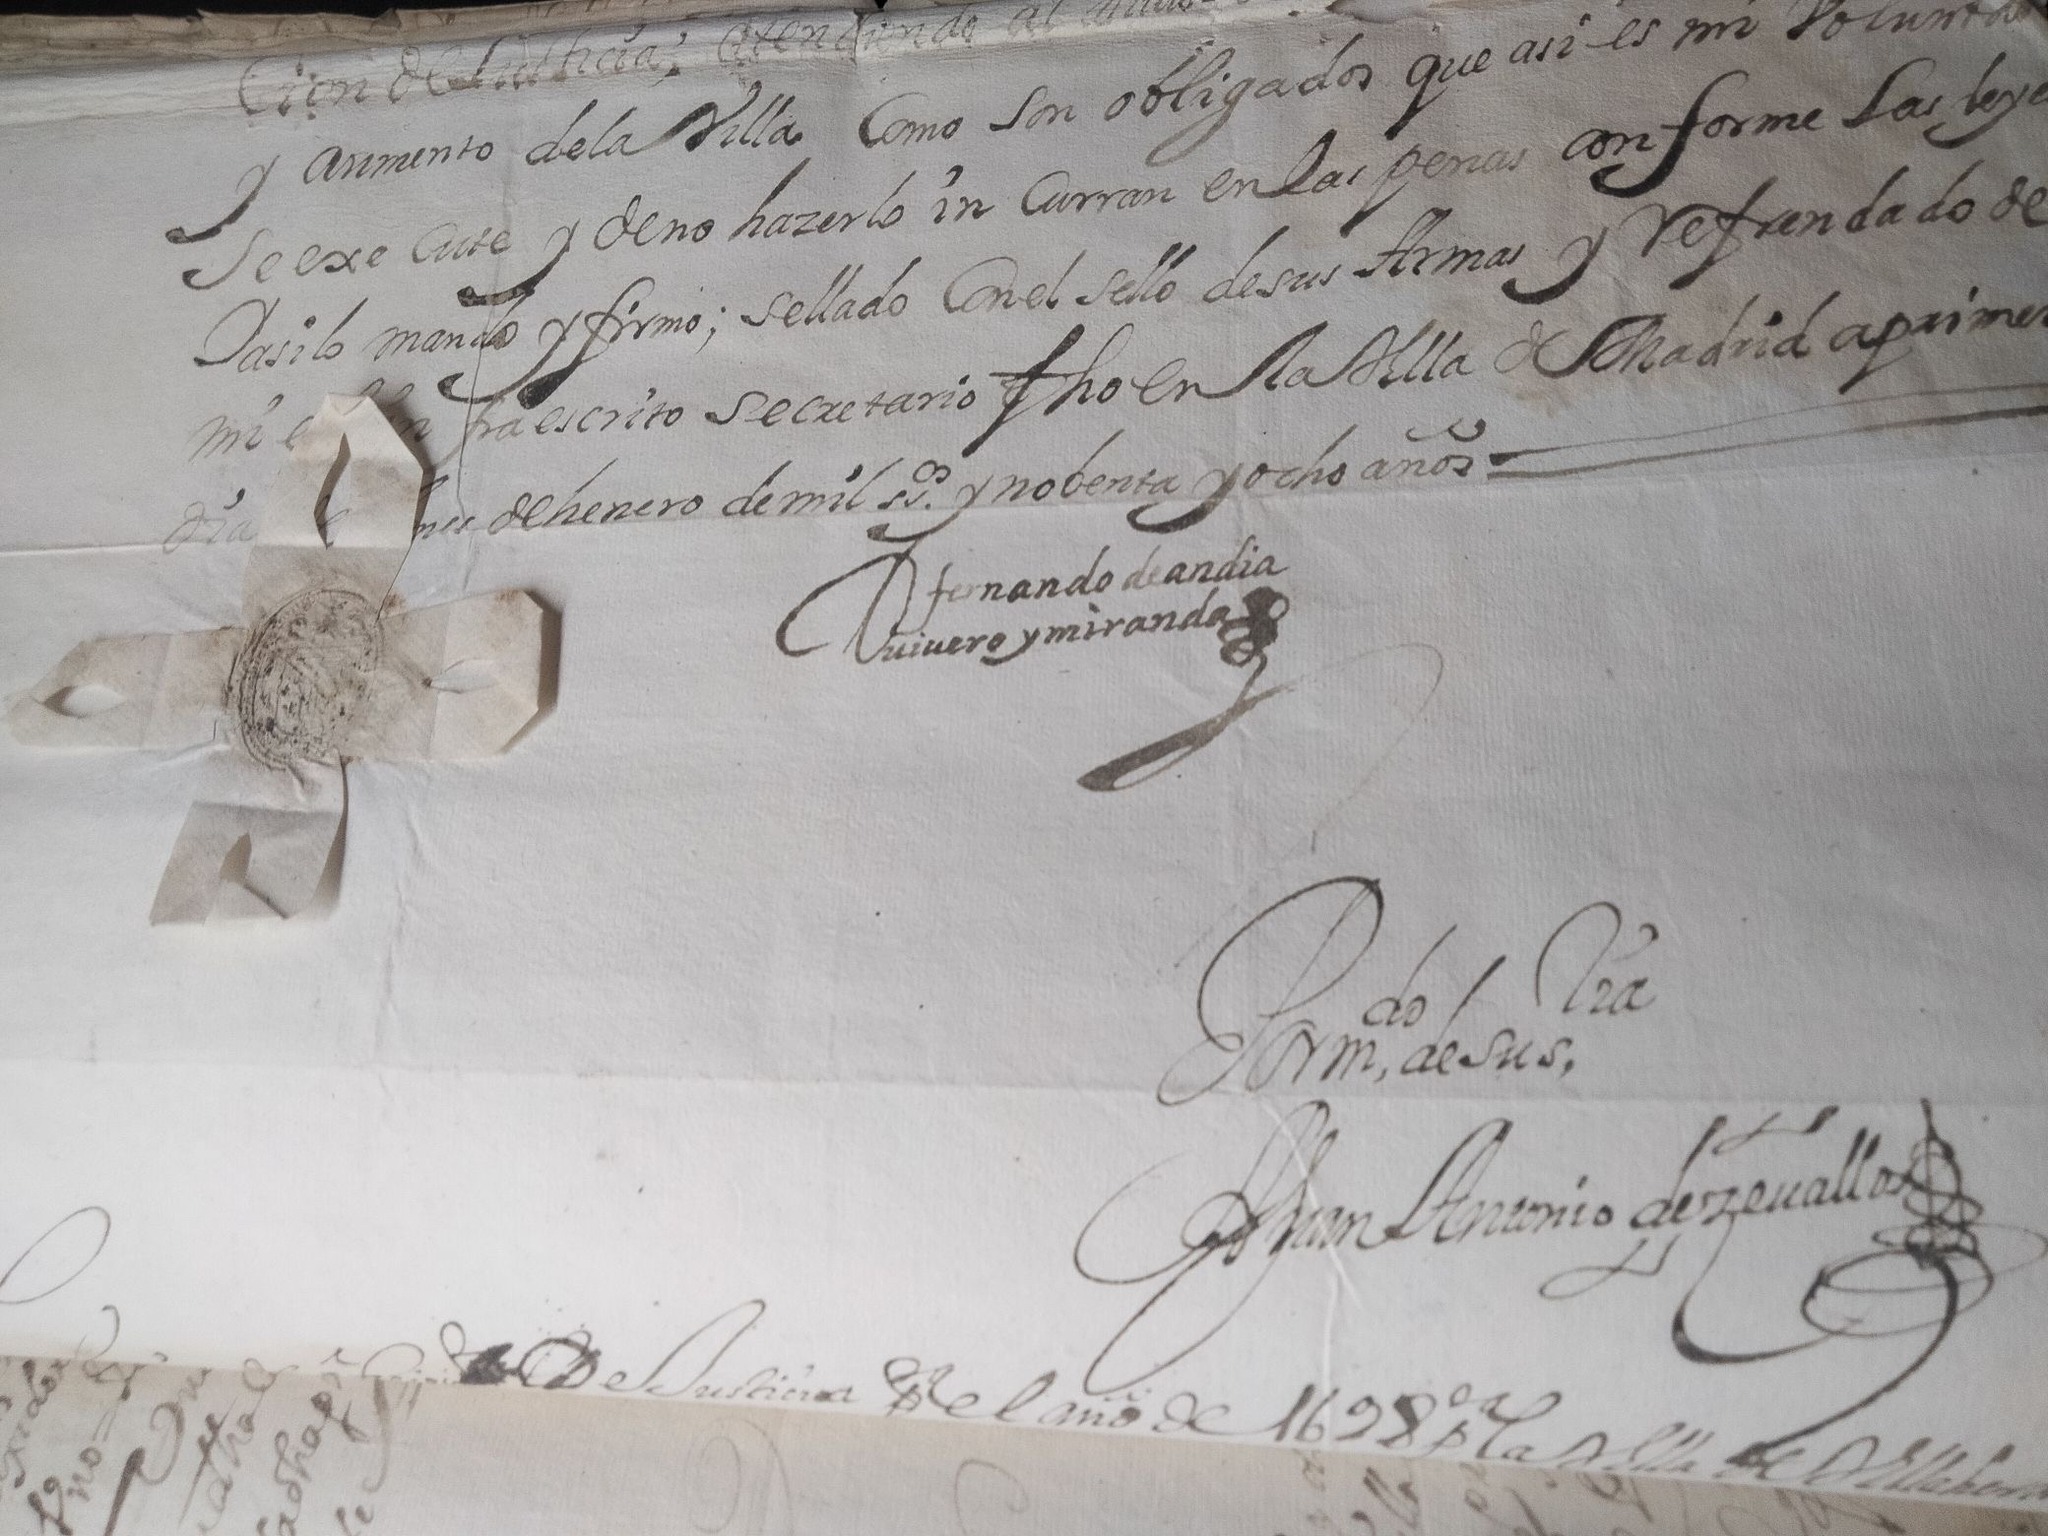 cion de Justicia, atendiendo al
y aumento dela Villa Como son obligados que asi es mi Volunta
Se exe Cute y deno hazerlo in Curran en las penas conforme Las leye
Yasilo mando y firmo; sellado Con el sello desus Armas y refrendado de
mi el infraescrito secretario fho en la Villa de Madrid a primer
dia del mes dehenero de mil ss.os y nobenta y ocho años
fernando de andia
uiuero y miranda
Por mdo de Su S.ria
Juan Antonio de zeuallos
De Justicia Pa el año de 1698 pa la Villa de Villaherm